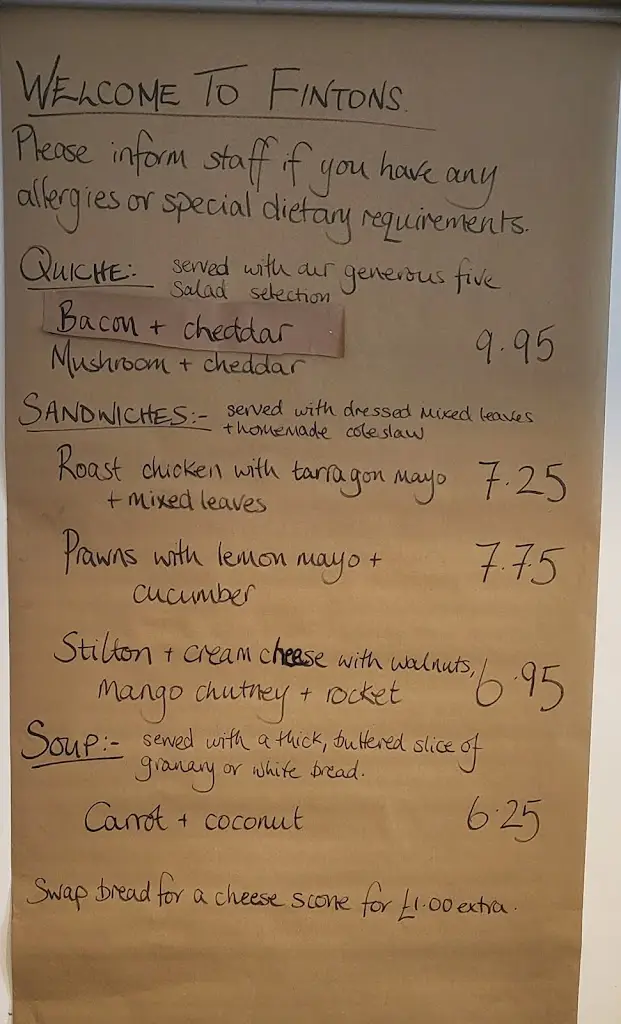 WELCOME TO FINTONS.
Please inform staff if you have any
allergies or special dietary requirements.
QUICHE:- served with our generous five
salad selection
Bacon + cheddar
Mushroom + cheddar 9.95
SANDWICHES:- served with dressed mixed leaves
+ homemade coleslaw
Roast chicken with tarragon mayo 7.25
+ mixed leaves
Prawns with lemon mayo + 7.75
cucumber
Stilton + cream cheese with walnuts,
mango chutney + rocket 6.95
SOUP:- served with a thick, buttered slice of
granary or white bread.
Carrot + coconut 6.25
Swap bread for a cheese scone for £1.00 extra.